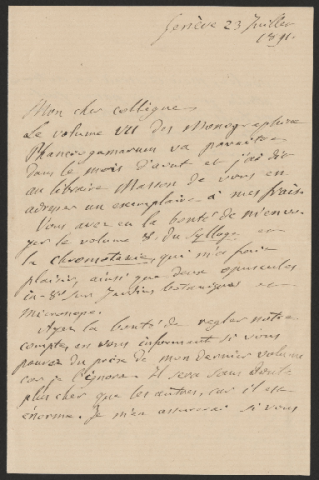 Genève 23 Juillet
1891.
Mon cher collègue,
Le volume VII des Monographiae
Phanerogamarum va paraitre
dans le mois d'aout et j'ai dit
au libraire Masson de vous en
adresser un exemplaire à mes frais.
Vous avez eu la bonté de m'envo-
yer le volume du Sylloge et
la chromotaxia, qui m'a fait
plaisir, ainsi que deux opuscules
in-8° sur Jardins botaniques et

Ayez la bonté de regler notre
compte, en vous informant si vous
pouvez du prix de mon dernier volume
car je l'ignore. Il sera sans doute
plus cher que les autres, car il est
énorme. Je m'en assurerai si vous